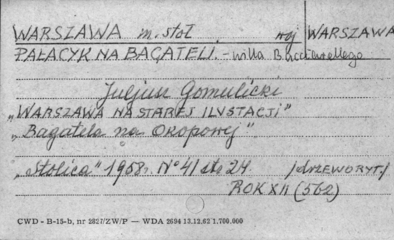 WARSZAWA m. stoł. woj WARSZAWA
PAŁACYK NA BAGATELI. - willa Bacciarellego
Juljusz Gomulicki
"WARSZAWA NA STAREJ ILUSTACJI"
"Bagatela na Okopowej"
"Stolica" 1958r. No 41 str 24 /drzeworyt/
ROK XII (562)
CWD - B-15-b, nr 2827/ZW/P — WDA 2694 12.12.62 1.700.000